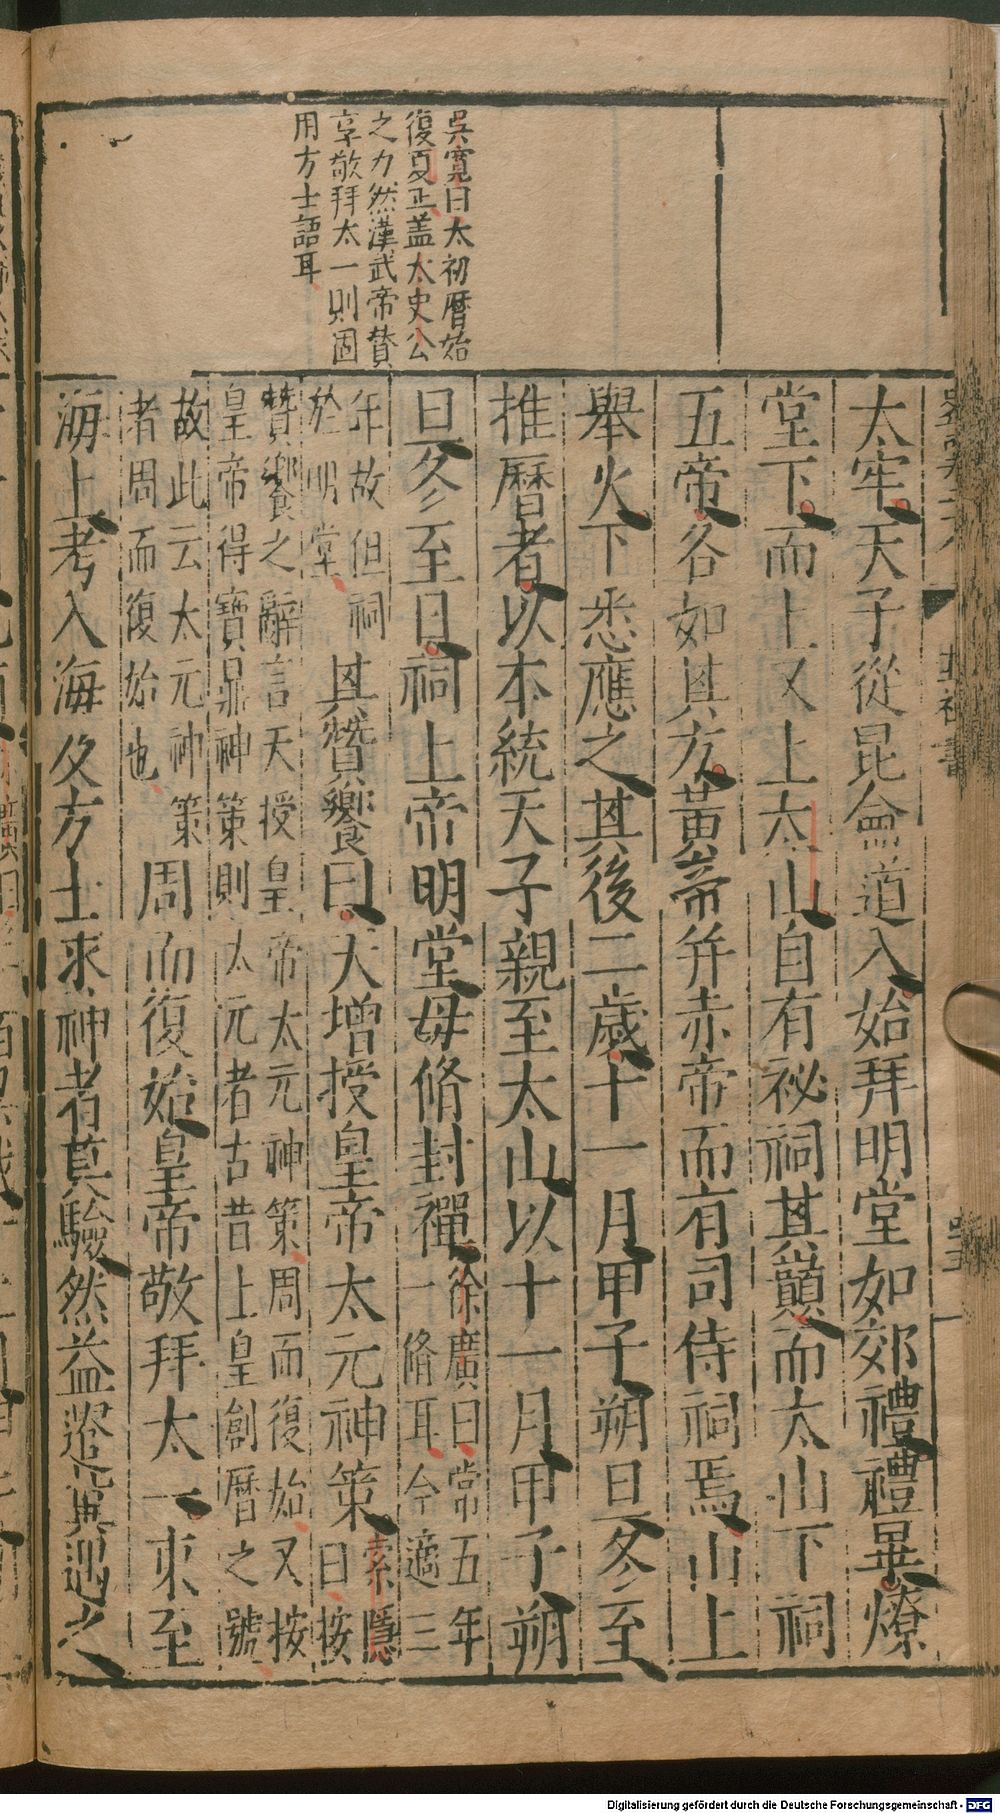 吳寬曰太初曆始
復夏正盖太史公
之力然漢武帝贊
享敬拜太一則固
用方士語耳
太牢天子從昆侖道入始拜明堂如郊禮禮畢燎
堂下而上又上太山自有祕祠其巔而太山下祠
五帝各如其方黃帝并赤帝而有司侍祠焉山上
舉火下悉應之其後二歲十一月甲子朔旦冬至
推曆者以本統天子親至太山以十一月甲子朔
旦冬至日祠上帝明堂毋脩封禪徐廣曰常五年
一脩耳今適三
年故但祠
於明堂
其贊饗曰天增授皇帝太元神策索隱
曰按
贊饗之辭言天授皇帝太元神策周而復始又按
皇帝得寶鼎神策則太元者古昔上皇創曆之號
故此云太元神策
者周而復始也
周而復始皇帝敬拜太一東至
海上考入海及方士求神者莫驗然益遣冀遇之
Digitalisierung gefördert durch die Deutsche Forschungsgemeinschaft - DFG